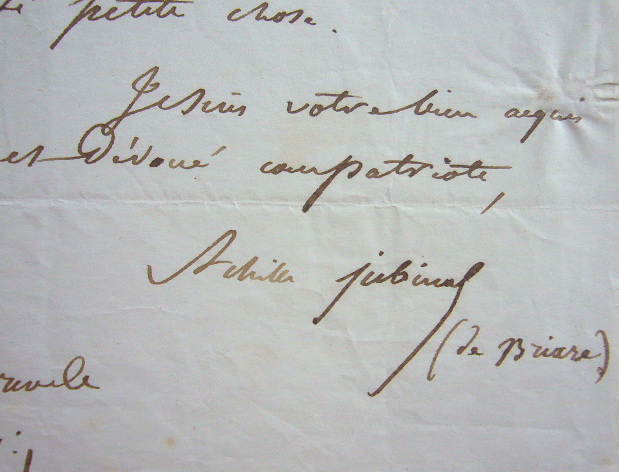 petite chose.
Je suis votre bien acquis
et Dévoué compatriote,
Achille Jubinal
(de Briare)